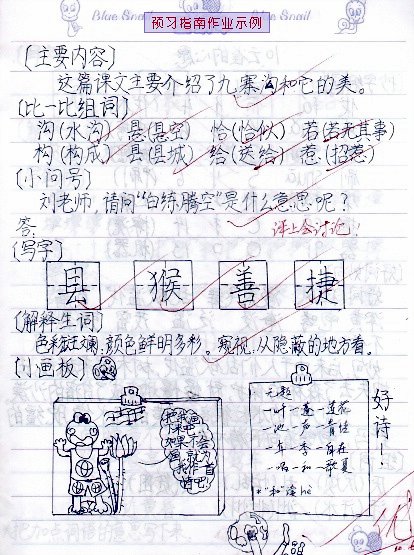 预习指南作业示例
Blue Snail
Blue Snail
(主要内容)
这篇课文主要介绍了九寨沟和它的美。
(比一比组词)
沟(水沟) 悬(悬空) 恰(恰似) 若(若无其事)
构(构成) 县(县城) 给(送给) 惹(招惹)
(小问号)
刘老师,请问“白练腾空”是什么意思呢?
答: 课上会讨论!
(写字)
县 猴 善 捷
(解释生词)
色彩斑斓,颜色鲜明多彩。窥视,从隐蔽的地方看。
(小画板)
把我画
下来吧
如果不会
画,就为
我作一首
诗吧!
无题
一叶一蓬一莲花
一池一声一青蛙
一年一季一自在
一唱一和一华夏
*“和”读hè
好诗!
优